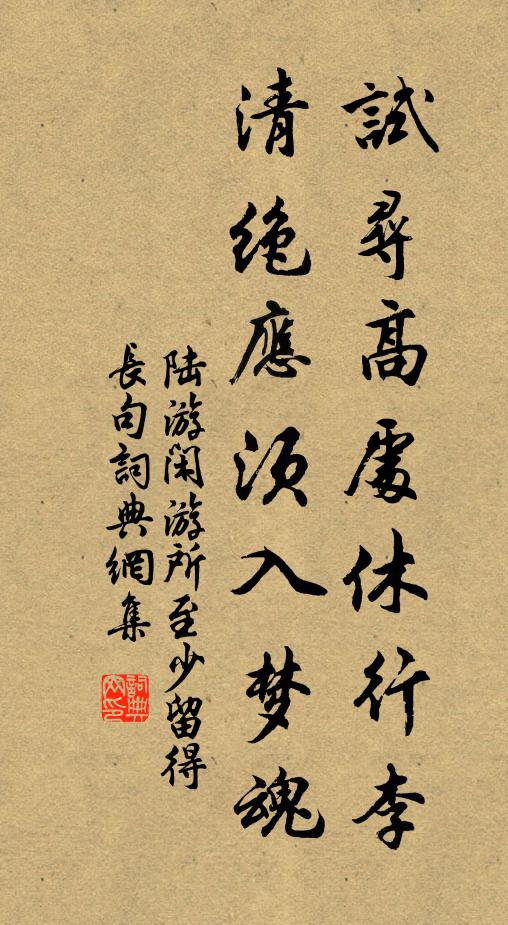 試尋高處休行李
清絶應須入梦魂
陆游閑游所至少留得
長句詞典網集
詞典網印